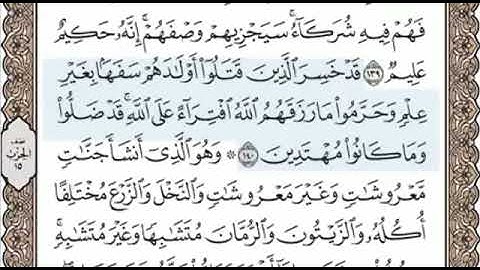 فَهُمْ فِيهِ شُرَكَآءُ ۚ سَيَجْزِيهِمْ وَصْفَهُمْ ۚ إِنَّهُۥ حَكِيمٌ
عَلِيمٌ ١٣٩ قَدْ خَسِرَ ٱلَّذِينَ قَتَلُوٓا۟ أَوْلَـٰدَهُمْ سَفَهًۢا بِغَيْرِ
عِلْمٍ وَحَرَّمُوا۟ مَا رَزَقَهُمُ ٱللَّهُ ٱفْتِرَآءً عَلَى ٱللَّهِ ۚ قَدْ ضَلُّوا۟
وَمَا كَانُوا۟ مُهْتَدِينَ ١٤٠ ۞ وَهُوَ ٱلَّذِىٓ أَنشَأَ جَنَّـٰتٍ
مَّعْرُوشَـٰتٍ وَغَيْرَ مَعْرُوشَـٰتٍ وَٱلنَّخْلَ وَٱلزَّرْعَ مُخْتَلِفًا
أُكُلُهُۥ وَٱلزَّيْتُونَ وَٱلرُّمَّانَ مُتَشَـٰبِهًا وَغَيْرَ مُتَشَـٰبِهٍ ۚ
نصف
الحزب
١٥